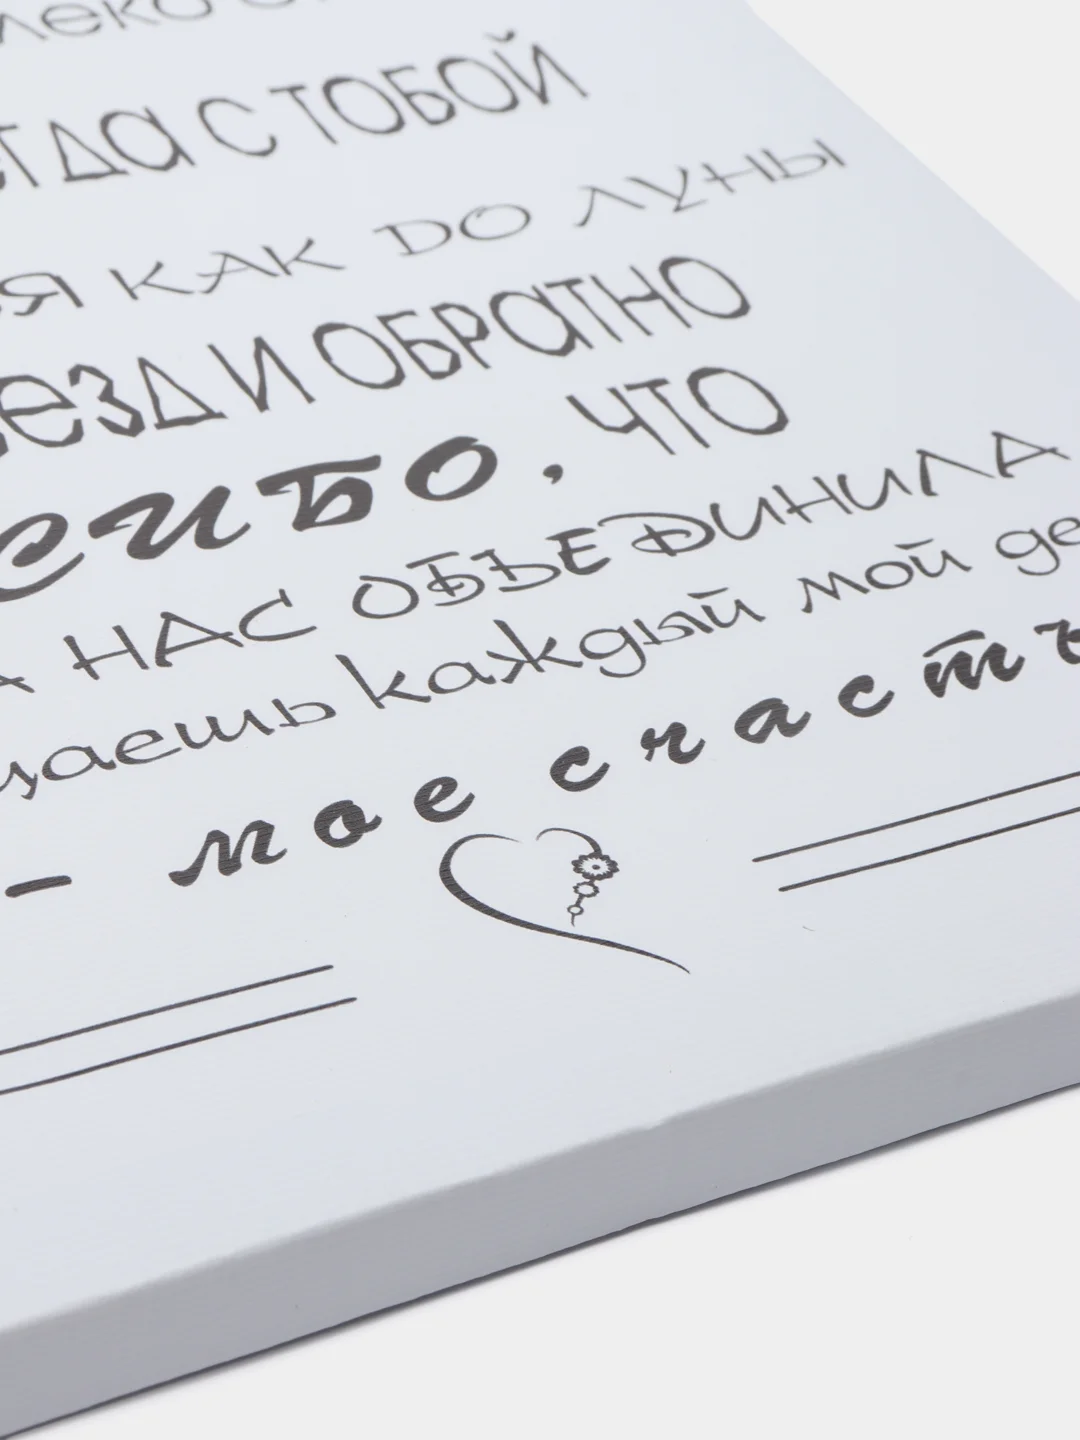 леко
гда с тобой
я как до луны
везд и обратно
сибо, что
а нас объединила
щаешь каждый мой де
- мое счасть